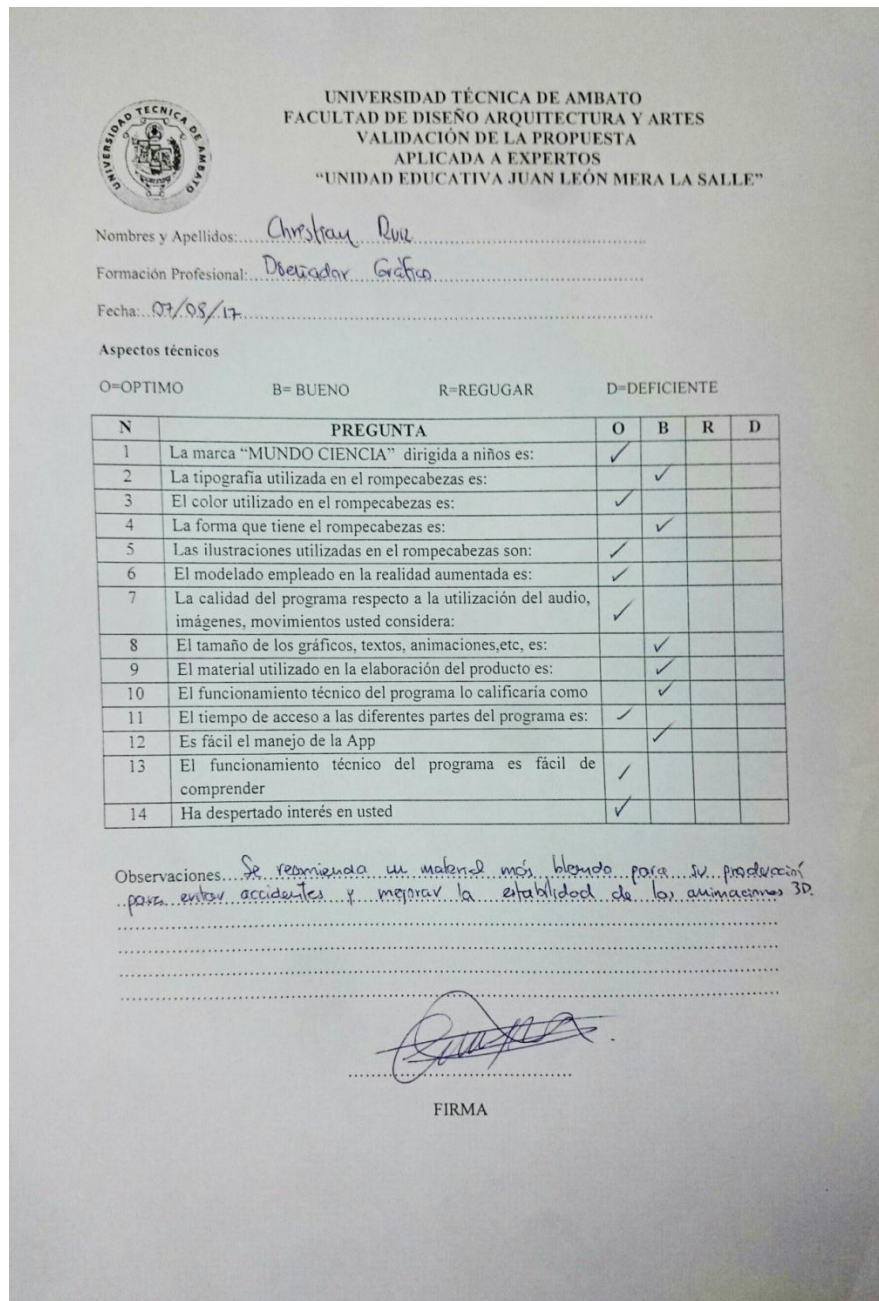 UNIVERSIDAD TECNICA DE AMBATO
UNIVERSIDAD TÉCNICA DE AMBATO
FACULTAD DE DISEÑO ARQUITECTURA Y ARTES
VALIDACIÓN DE LA PROPUESTA
APLICADA A EXPERTOS
“UNIDAD EDUCATIVA JUAN LEÓN MERA LA SALLE”
Nombres y Apellidos: Christian Ruiz
Formación Profesional: Diseñador Gráfico
Fecha: 07/08/17
Aspectos técnicos
O=OPTIMO B= BUENO R=REGUGAR D=DEFICIENTE
N PREGUNTA O B R D
1 La marca “MUNDO CIENCIA” dirigida a niños es: ✓
2 La tipografía utilizada en el rompecabezas es: ✓
3 El color utilizado en el rompecabezas es: ✓
4 La forma que tiene el rompecabezas es: ✓
5 Las ilustraciones utilizadas en el rompecabezas son: ✓
6 El modelado empleado en la realidad aumentada es: ✓
7 La calidad del programa respecto a la utilización del audio,
imágenes, movimientos usted considera: ✓
8 El tamaño de los gráficos, textos, animaciones,etc, es: ✓
9 El material utilizado en la elaboración del producto es: ✓
10 El funcionamiento técnico del programa lo calificaría como ✓
11 El tiempo de acceso a las diferentes partes del programa es: ✓
12 Es fácil el manejo de la App ✓
13 El funcionamiento técnico del programa es fácil de
comprender ✓
14 Ha despertado interés en usted ✓
Observaciones Se recomienda un material más blando para su producción
para evitar accidentes y mejorar la estabilidad de las animaciones 3D.
FIRMA